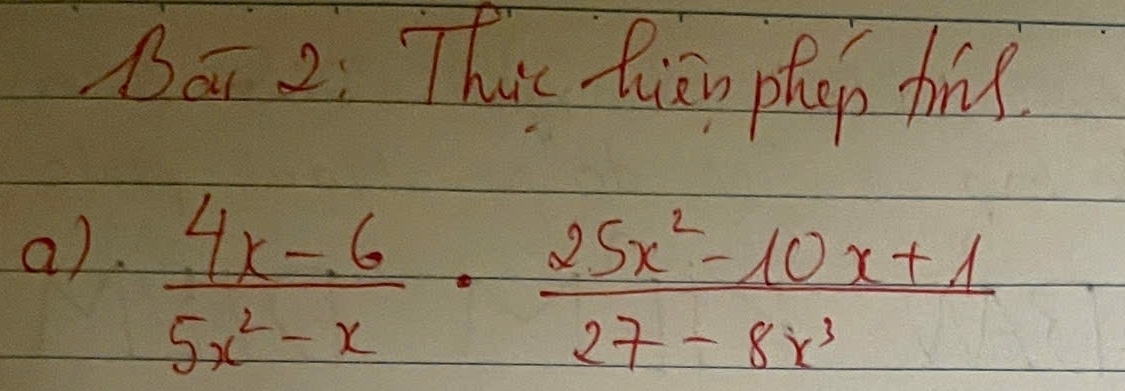 Bài 2: Thực hiện phép tính.
a). \frac{4x-6}{5x^2-x} \cdot \frac{25x^2-10x+1}{27-8x^3}